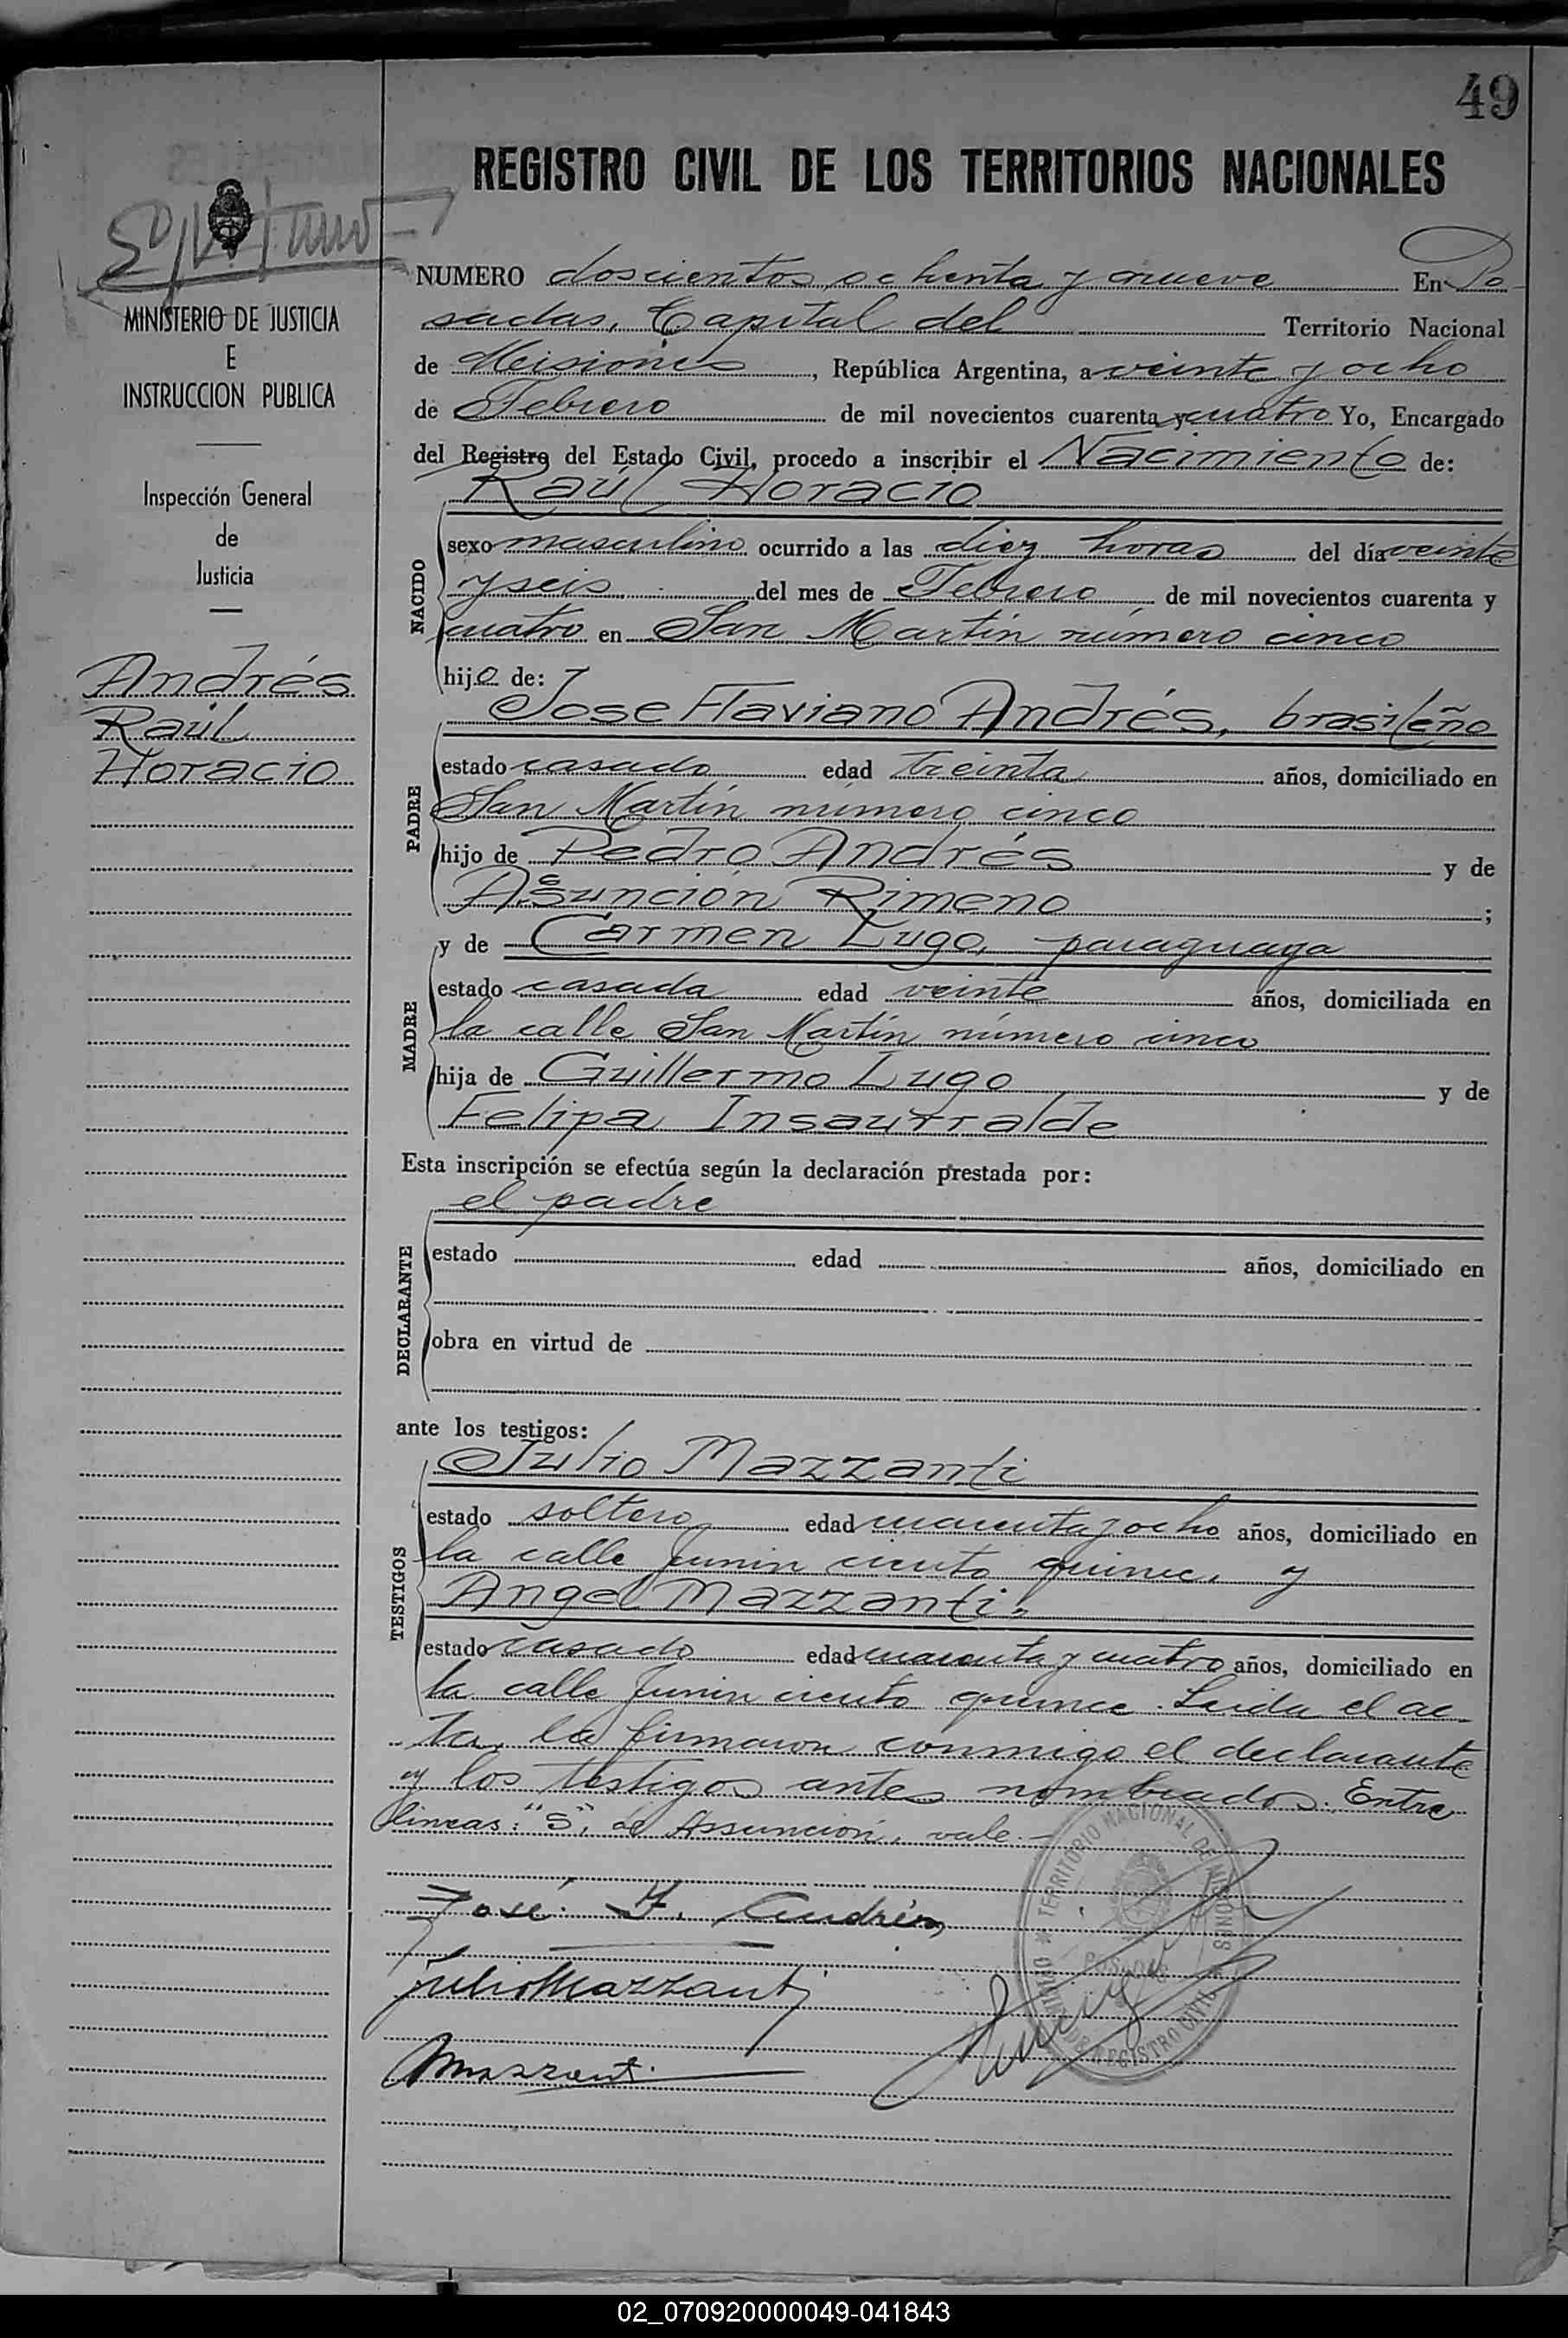 49
REGISTRO CIVIL DE LOS TERRITORIOS NACIONALES
MINISTERIO DE JUSTICIA
E
INSTRUCCION PUBLICA
Inspección General
de
Justicia
Andrés
Raúl
Horacio
NUMERO doscientos ochenta y nueve En Po-
sadas, Capital del Territorio Nacional
de Misiones, República Argentina, a veinte y ocho
de Febrero de mil novecientos cuarenta y cuatro Yo, Encargado
del Registro del Estado Civil, procedo a inscribir el Nacimiento de:
Raúl Horacio
NACIDO
sexo masculino ocurrido a las diez horas del día veinte
y seis del mes de Febrero de mil novecientos cuarenta y
cuatro en San Martín número cinco
hijo de:
José Flaviano Andrés, brasileño
PADRE
estado casado edad treinta años, domiciliado en
San Martín número cinco
hijo de Pedro Andrés y de
Assunción Rimeno;
y de Carmen Lugo, paraguaya
MADRE
estado casada edad veinte años, domiciliada en
la calle San Martín número cinco
hija de Guillermo Lugo y de
Felipa Insaurralde
Esta inscripción se efectúa según la declaración prestada por:
el padre
DECLARANTE
estado edad años, domiciliado en
obra en virtud de
ante los testigos:
Julio Mazzanti
TESTIGOS
estado soltero edad cuarenta y ocho años, domiciliado en
la calle Junin ciento quince, y
Angel Mazzanti:
estado casado edad cuarenta y cuatro años, domiciliado en
la calle Junin ciento quince. Leida el ac-
ta, la firmaron conmigo el declarante
y los testigos antes nombrados. Entre
lineas: "s", de Assunción, vale.-
José F. Andrés
Julio Mazzanti
Mazzanti
TERRITORIO NACIONAL DE MISIONES
POSADAS
REGISTRO CIVIL
02_070920000049-041843